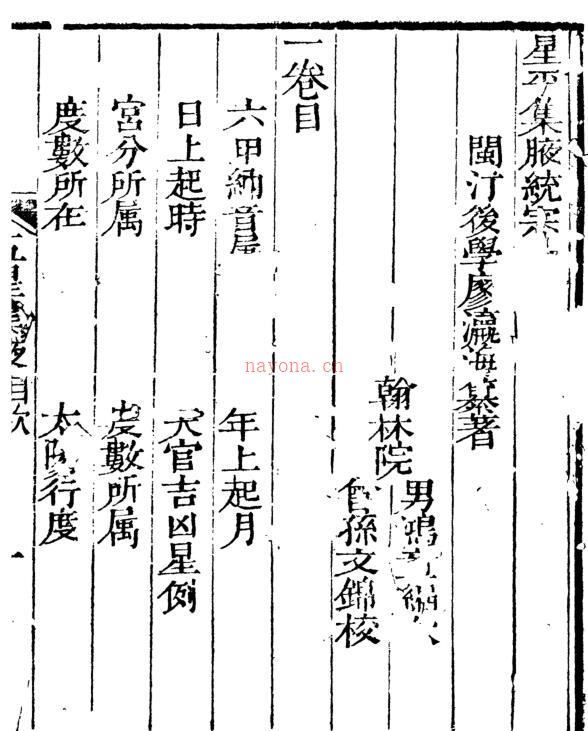 星平集腋統宗
閩汀後學廖瀛海纂著
翰林院
男鴻
曾孫文錦校
一卷目
六甲納音屬
年上起月
日上起時
天官吉凶星例
宮分所属
度數所属
度數所在
太陽行度
五星集腋目次
一
nayona.cn